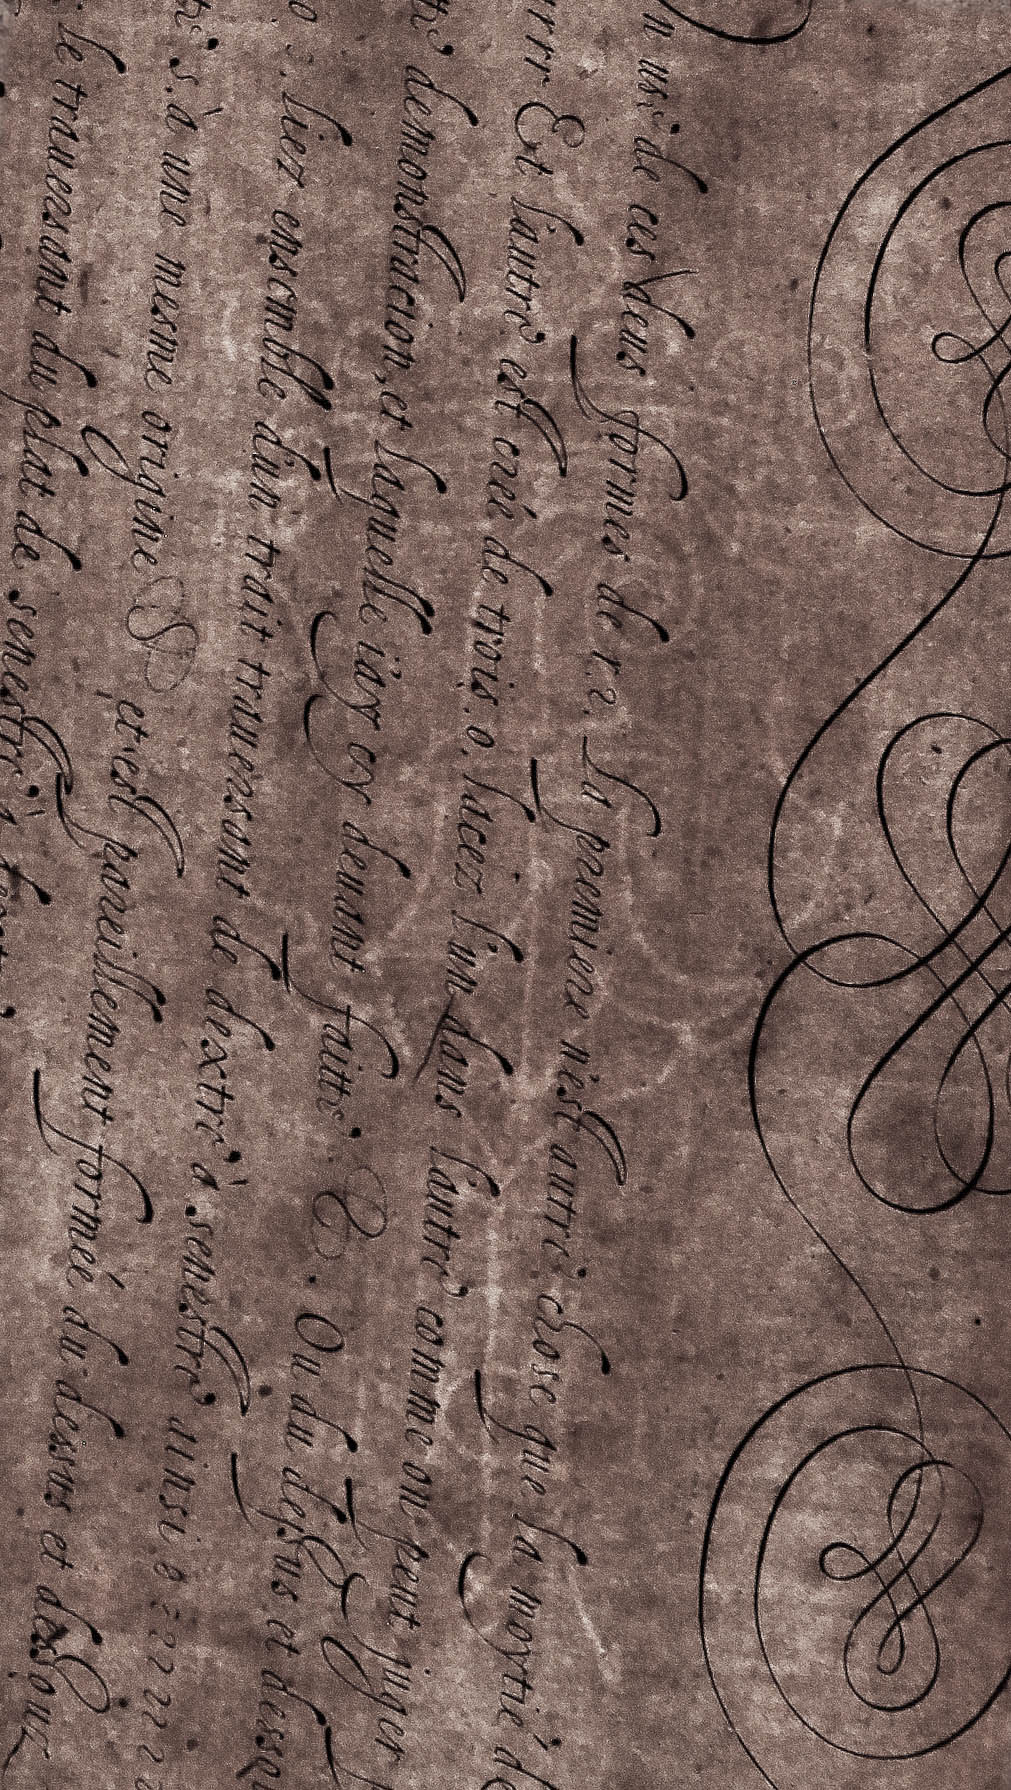 de ces deus formes de r.2. La premiere n'est autre chose que la moytié de
Et lautre est creé de trois .o. lacez l'un dans lautre comme on peut juger
demonstracion, et laquelle iay cy devant faitte. Ou du dessus et
liez ensemble d'un trait trauersant de dextre a senestre ainsi
.s. a une mesme origine et est pareillement formeé du dessus et dessoux
le trauersant du plat de senestre a